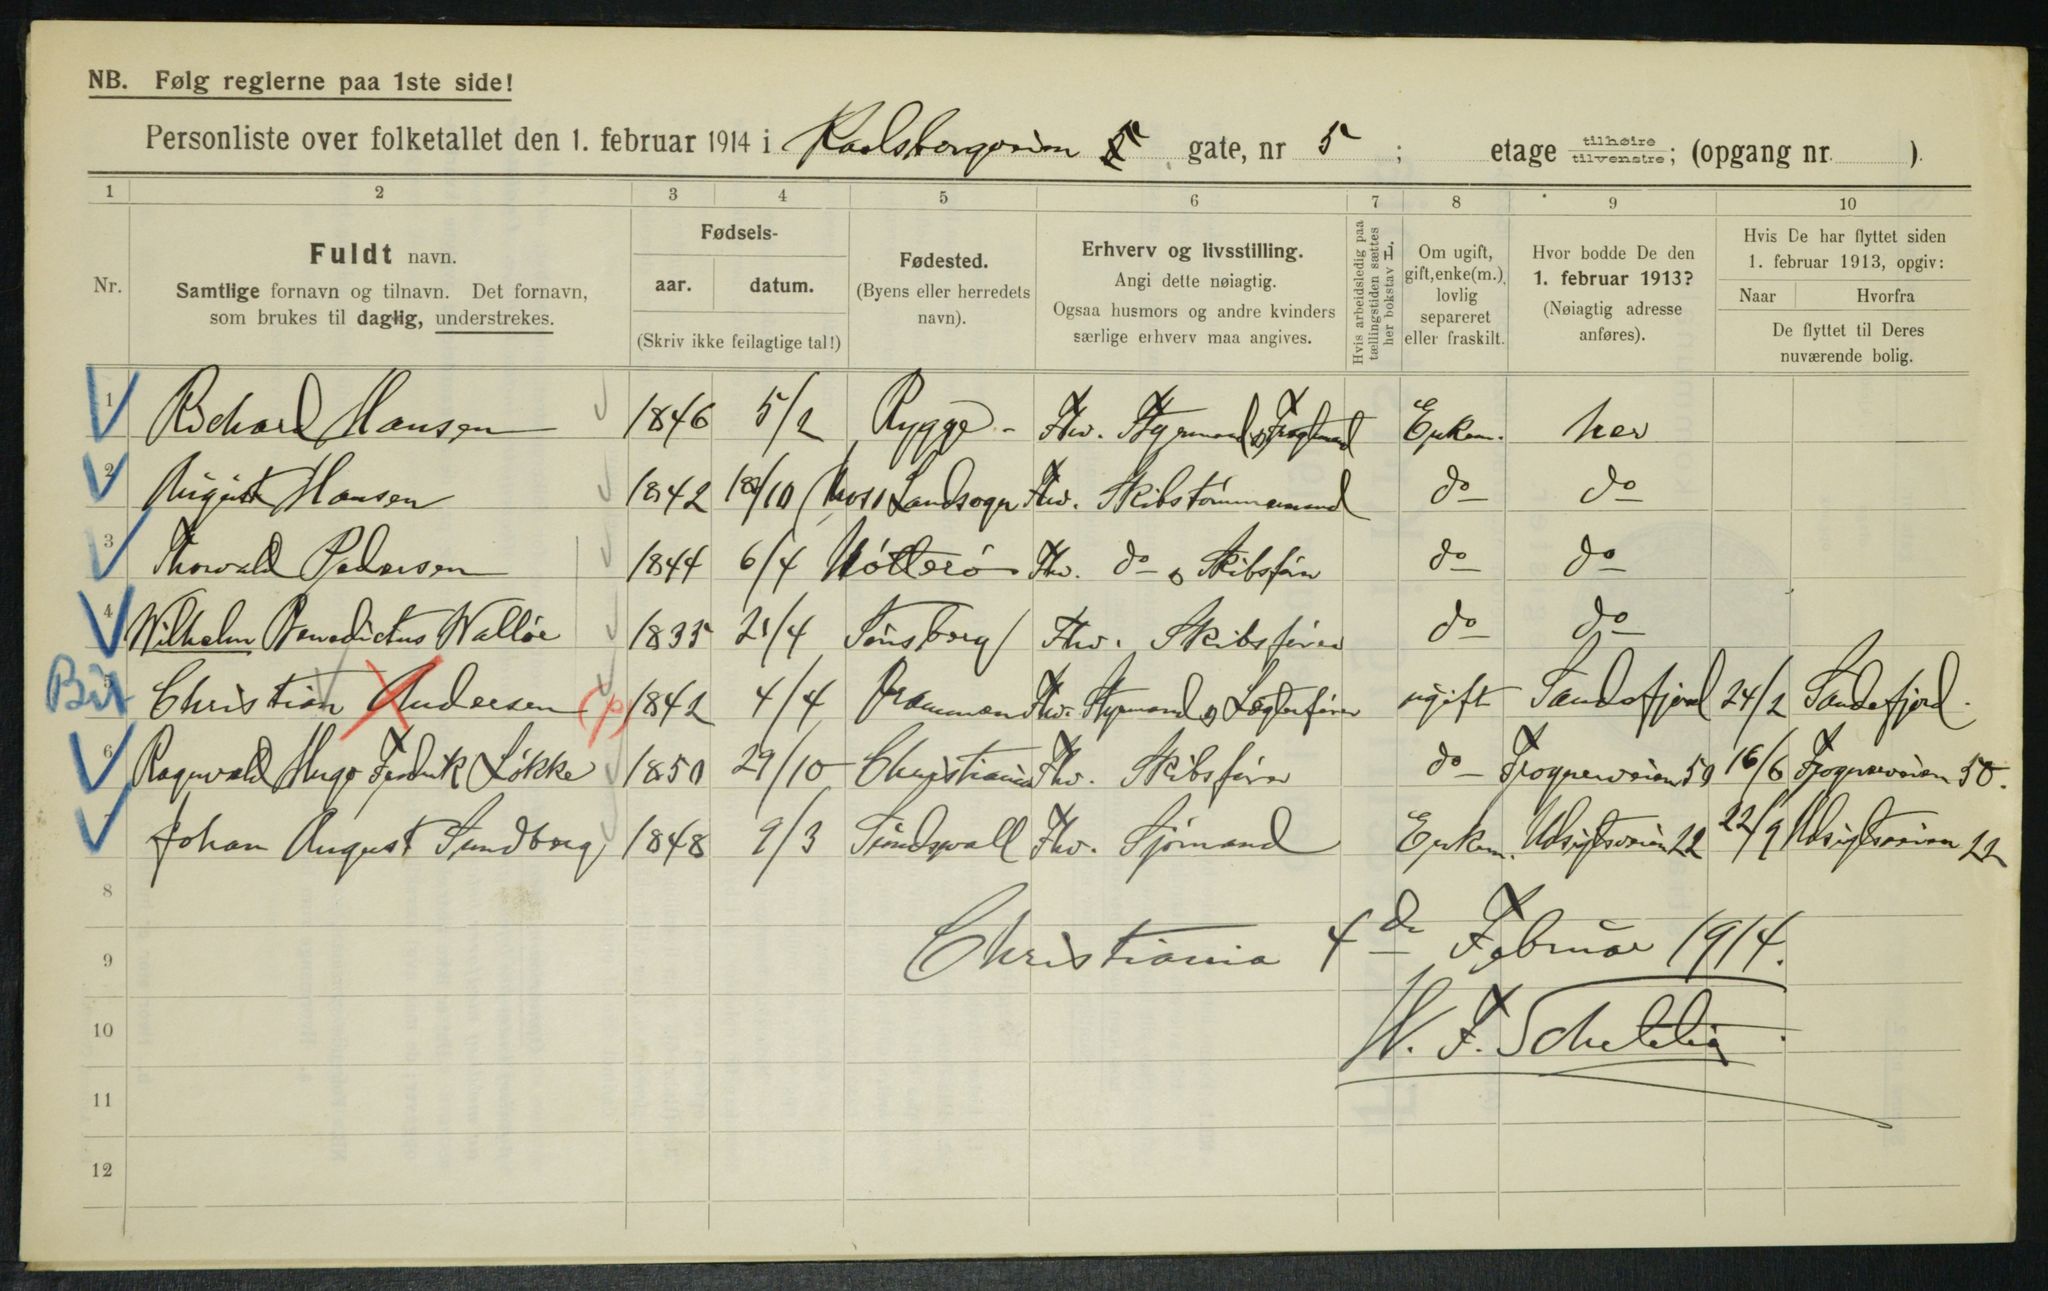 NB. Følg reglerne paa 1ste side!
Personliste over folketallet den 1. februar 1914 i Karlsborgveien 5 gate, nr 5 ; etage tilhøire tilvenstre; (opgang nr. ).
1 2 3 4 5 6 7 8 9 10
Nr.
Fuldt navn.
Samtlige fornavn og tilnavn. Det fornavn,
som brukes til daglig, understrekes.
Fødsels-
aar. datum.
(Skriv ikke feilagtige tal!)
Fødested.
(Byens eller herredets
navn).
Erhverv og livsstilling.
Angi dette nøiagtig.
Ogsaa husmors og andre kvinders
særlige erhverv maa angives.
Hvis arbeidsledig paa
tællingstiden sættes
her bokstav L.
Om ugift,
gift, enke(m.),
lovlig
separeret
eller fraskilt.
Hvor bodde De den
1. februar 1913?
(Nøiagtig adresse
anføres).
Hvis De har flyttet siden
1. februar 1913, opgiv:
Naar Hvorfra
De flyttet til Deres
nuværende bolig.
1 Richard Hansen 1846 5/2 Rygge - Fhv. Styrmand & Fragtmand Enkem. her
2 August Hansen 1842 18/10 Moss Landsogn Fhv. Skibstømmermand do do
3 Thorvald Pedersen 1844 6/4 Nøtterø Fhv. do & Skibsfører do do
4 Wilhelm Benedictus Walløe 1835 21/4 Tønsberg Fhv. Skibsfører do do
5 Christian Andersen (p) 1842 4/4 Drammen Fhv. Styrmand & Lægterfører ugift Sandefjord 24/2 Sandefjord.
6 Ragnvald Hugo Fredrik Løkke 1850 29/10 Christiania Fhv. Skibsfører do Frognerveien 50 16/6 Frognerveien 50.
7 Johan August Sundborg 1848 9/3 Sundsvall Fhv. Sjømand Enkem. Utsigtsveien 22 22/9 Utsigtsveien 22
8
Christiania 4de Februar 1914.
9
10
W. F. Schelling
11
12